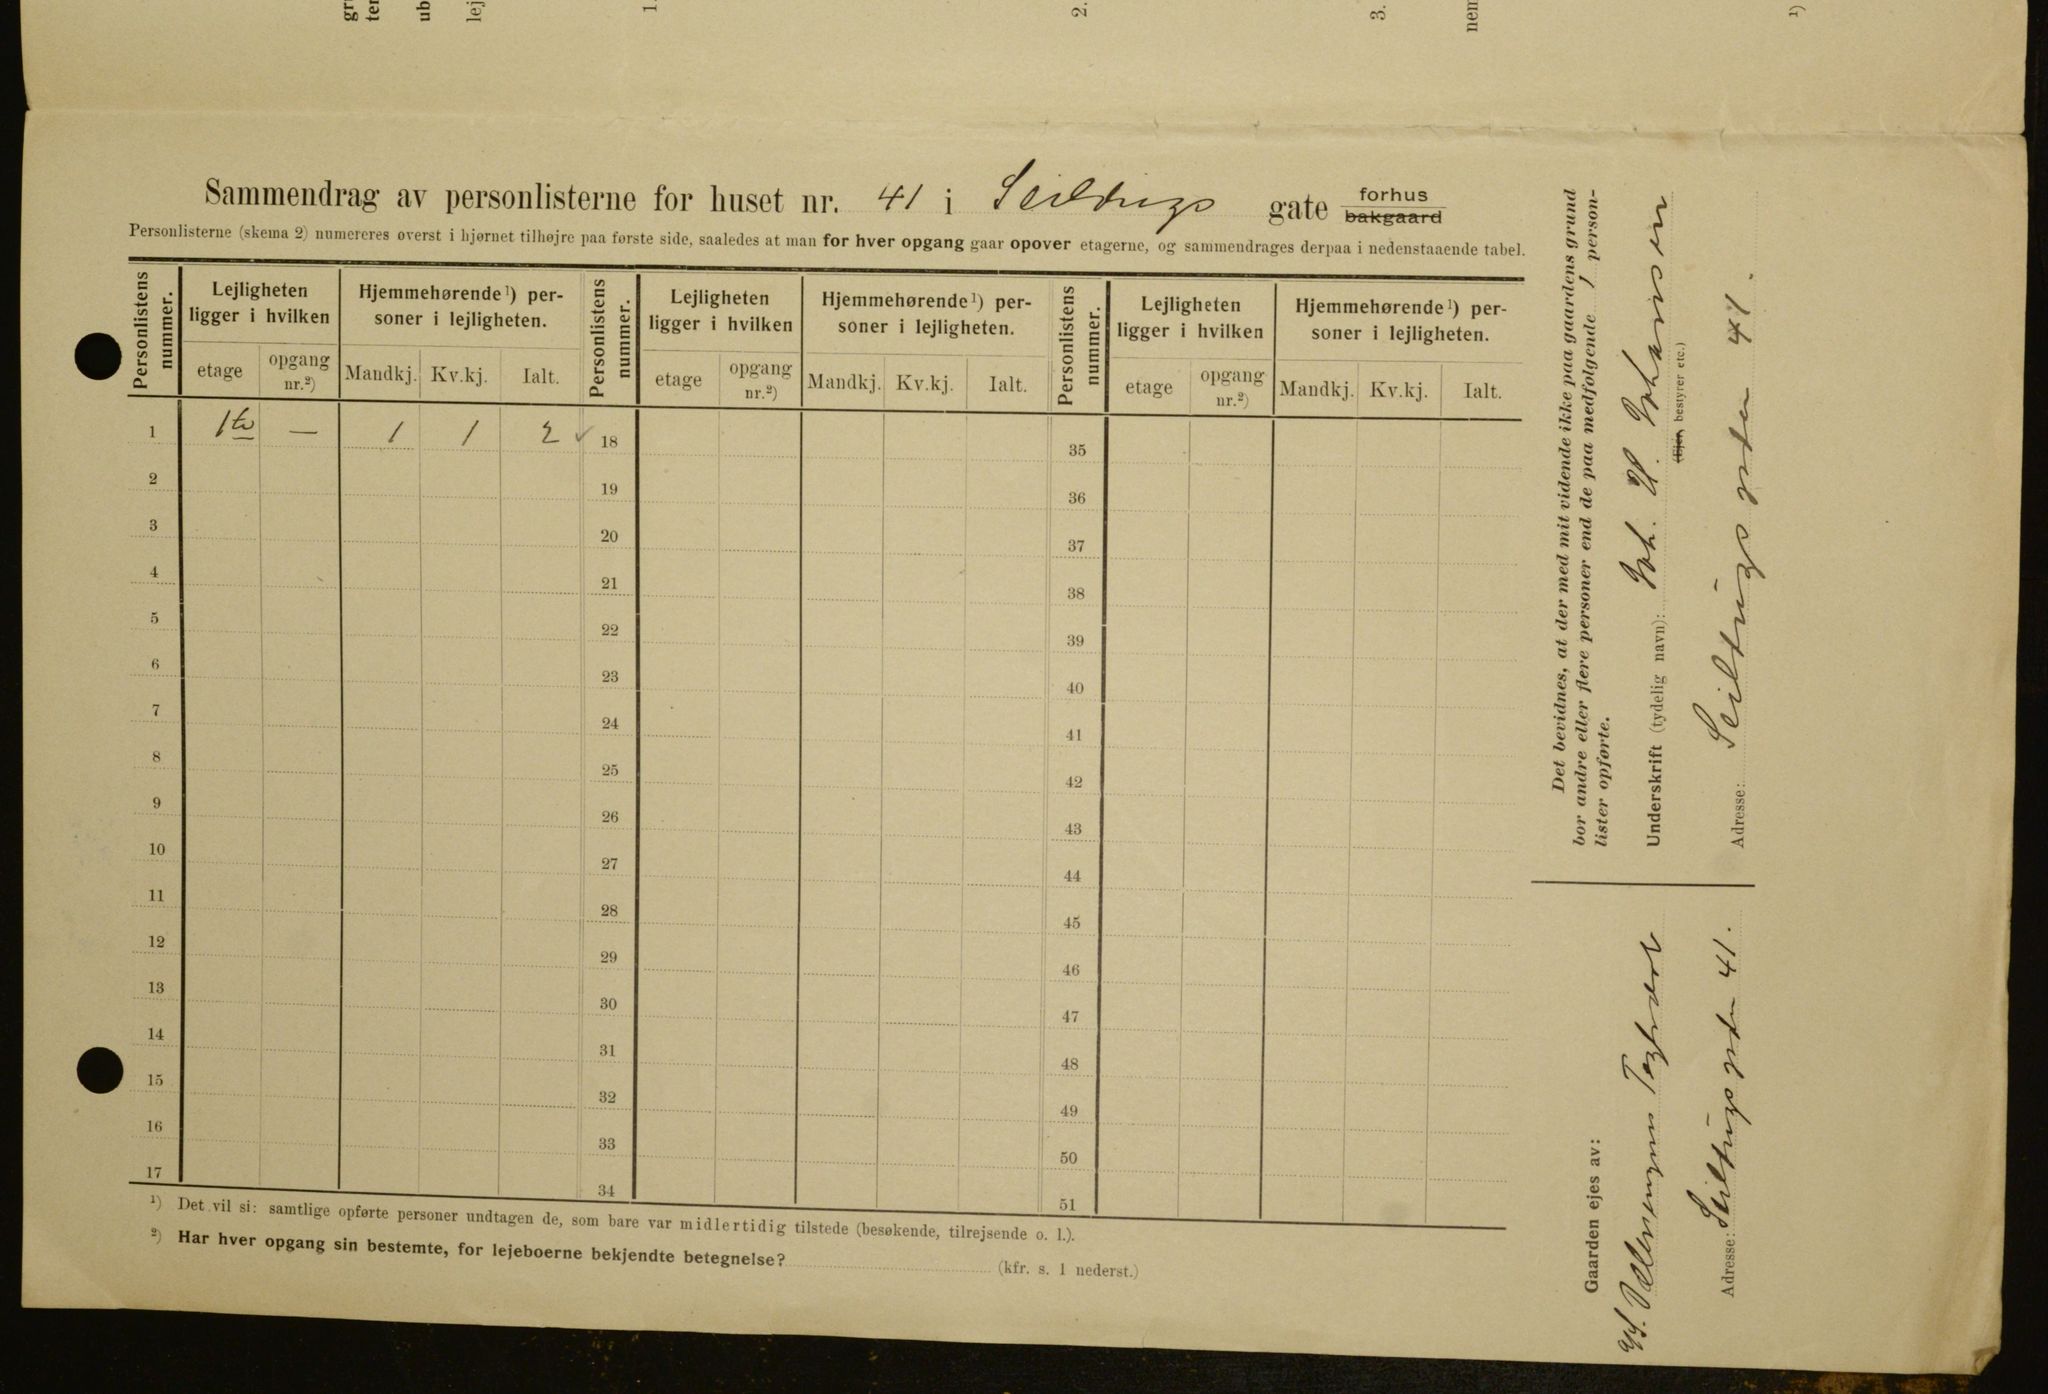 Sammendrag av personlisterne for huset nr. 41 i Seildugs gate forhus bakgaard
Personlisterne (skema 2) numereres øverst i hjørnet tilhøjre paa første side, saaledes at man for hver opgang gaar opover etagerne, og sammendrages derpaa i nedenstaaende tabel.
Personlistens nummer. Lejligheten ligger i hvilken Hjemmehørende ¹) personer i lejligheten. Personlistens nummer. Lejligheten ligger i hvilken Hjemmehørende ¹) personer i lejligheten. Personlistens nummer. Lejligheten ligger i hvilken Hjemmehørende ¹) personer i lejligheten.
etage opgang nr.²) Mandkj. Kv.kj. Ialt. etage opgang nr.²) Mandkj. Kv.kj. Ialt. etage opgang nr.²) Mandkj. Kv.kj. Ialt.
1 1ste — 1 1 2 ✓ 18 35
2 19 36
3 20 37
4 21 38
5 22 39
6 23 40
7 24 41
8 25 42
9 26 43
10 27 44
11 28 45
12 29 46
13 30 47
14 31 48
15 32 49
16 33 50
17 34 51
¹) Det vil si: samtlige opførte personer undtagen de, som bare var midlertidig tilstede (besøkende, tilrejsende o. l.).
²) Har hver opgang sin bestemte, for lejeboerne bekjendte betegnelse? (kfr. s. 1 nederst.)
Det bevidnes, at der med mit vidende ikke paa gaardens grund
bor andre eller flere personer end de paa medfølgende 1 person-
lister opførte.
Underskrift (tydelig navn): Joh. H. Johansen
(Ejer, bestyrer etc.)
Adresse: Seildugsgten 41.
Gaarden ejes av:
Adresse: Seildugsgten 41.
1.
2.
3.
¹)